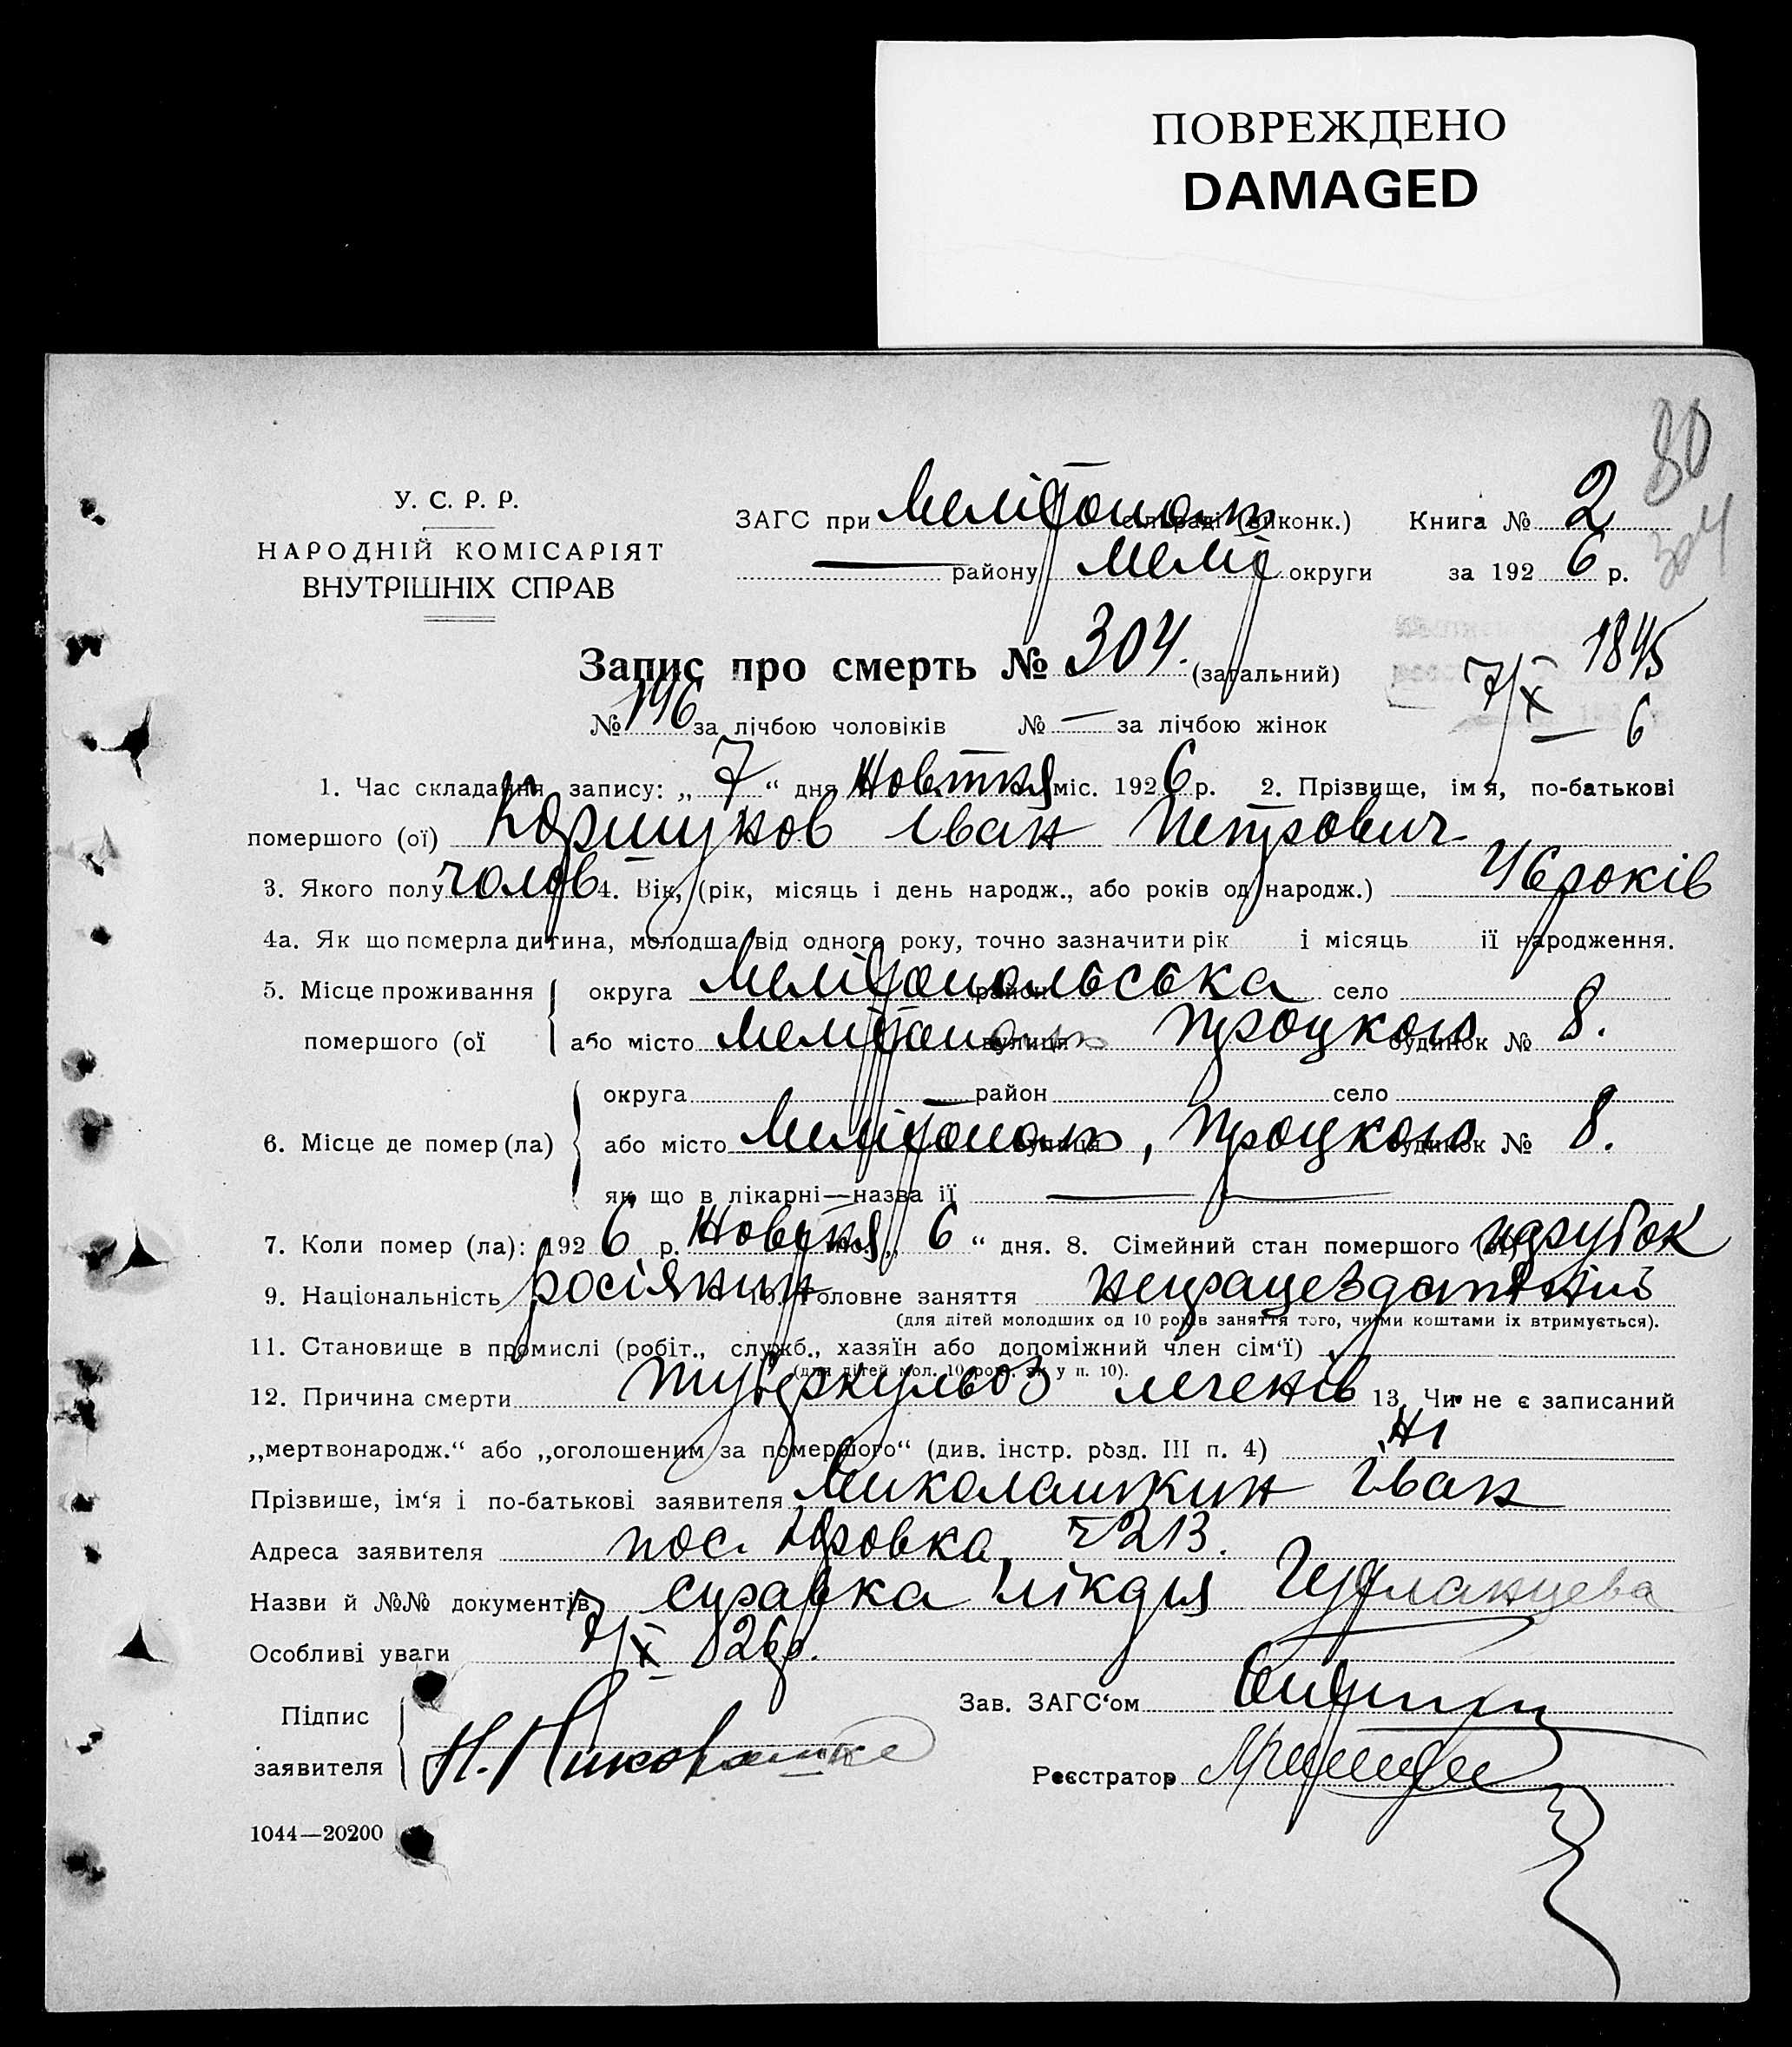 ПОВРЕЖДЕНО
DAMAGED
80
304
У. С. Р. Р.
НАРОДНІЙ КОМІСАРІЯТ
ВНУТРІШНІХ СПРАВ
ЗАГС при Мелітополь сільраді (виконк.) Книга № 2
— району Меліт округи за 1926 р.
Запис про смерть № 304. (загальний)
1845
7/X 6
№ 196 за лічбою чоловіків № — за лічбою жінок
1. Час складання запису: „7“ дня Жовтня міс. 1926 р. 2. Прізвище, імя, по-батькові
помершого (ої) Коршунов Іван Петрович
3. Якого полу чолов 4. Вік, (рік, місяць і день народж., або років од народж.) 46 років
4а. Як що померла дитина, молодша від одного року, точно зазначити рік і місяць ії народження.
5. Місце проживання округа Мелітопольська район село
помершого (ої або місто Мелітополь вулиця Троцкого будинок № 8.
округа — район село
6. Місце де помер (ла) або місто Мелітополь, вулиця Троцкого будинок № 8.
як що в лікарні—назва ії — —
7. Коли помер (ла): 1926 р. Жовтня міс. „6“ дня. 8. Сімейний стан помершого (ої) парубок
9. Національність росіянин 10. Головне заняття непрацездатний
(для дітей молодших од 10 років заняття того, чиїми коштами іх втримується).
11. Становище в промислі (робіт., служб., хазяїн або допоміжний член сім‘ї) —
(для дітей мол. 10 рок. як у п. 10).
12. Причина смерти туберкульоз легенів 13. Чи не є записаний
„мертвонародж.“ або „оголошеним за померлого“ (див. інстр. розд. III п. 4) Ні
Прізвише, ім‘я і по-батькові заявителя Миколашкин Іван
Адреса заявителя пос. Юровка, 213.
Назви й №№ документів справка лікаря
Особливі уваги 7/X 26р.
Підпис
заявителя
Зав. ЗАГС‘ом
Реєстратор
1044—20200